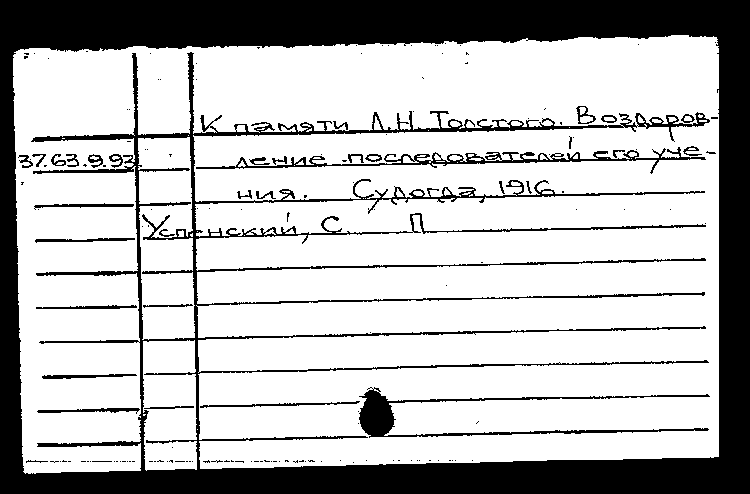 К памяти Л.Н. Толстого. Воздоров-
37.63.9.93 ление последователей его уче-
ния. Судогда, 1916.
Успенский, С П